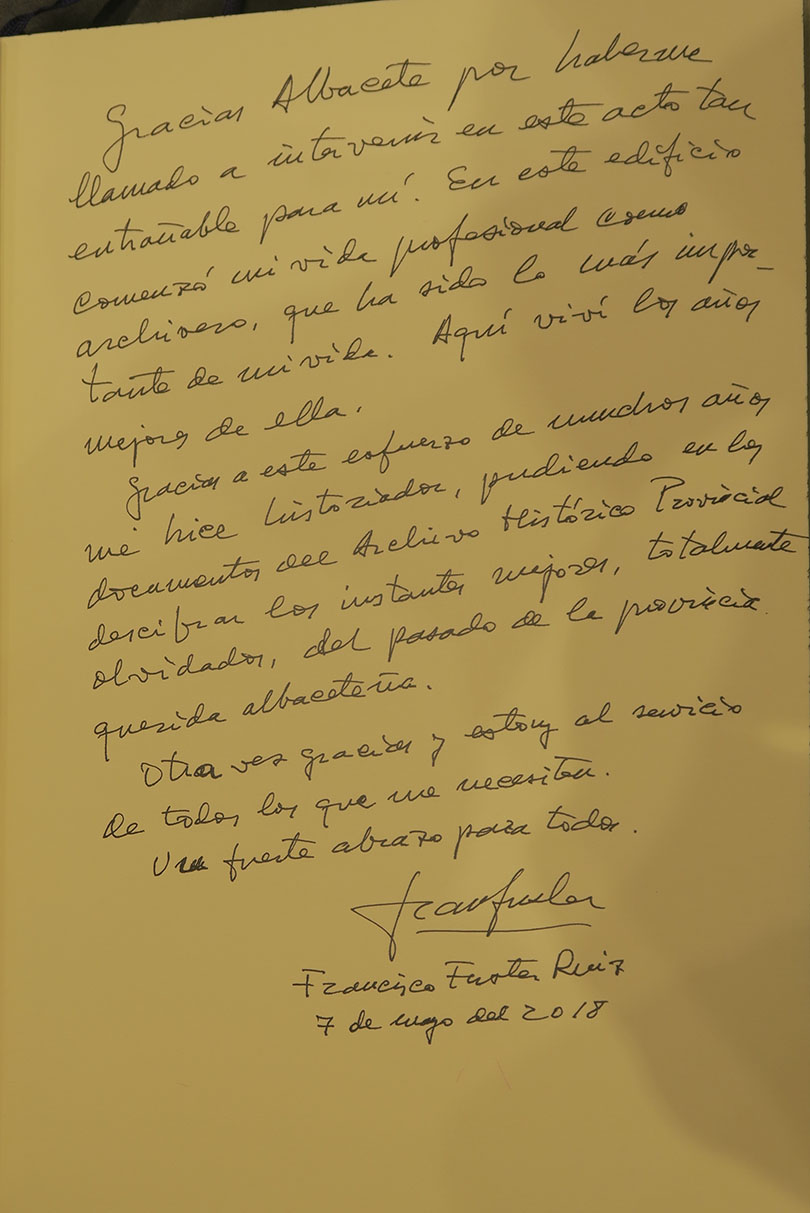 Gracias Albacete por haberme
llamado a intervenir en este acto tan
entrañable para mí. En este edificio
comenzó mi vida profesional como
archivero, que ha sido lo más impor-
tante de mi vida. Aquí viví los años
mejores de ella.
Gracias a este esfuerzo de muchos años
me hice historiador, pudiendo en los
documentos del Archivo Histórico Provincial
descifrar los instantes mejores, totalmente
olvidados, del pasado de la provincia
querida albaceteña.
Otra vez gracias y estoy al servicio
de todos los que me necesiten.
Un fuerte abrazo para todos.
Francisco Fuster Ruiz
7 de mayo del 2018